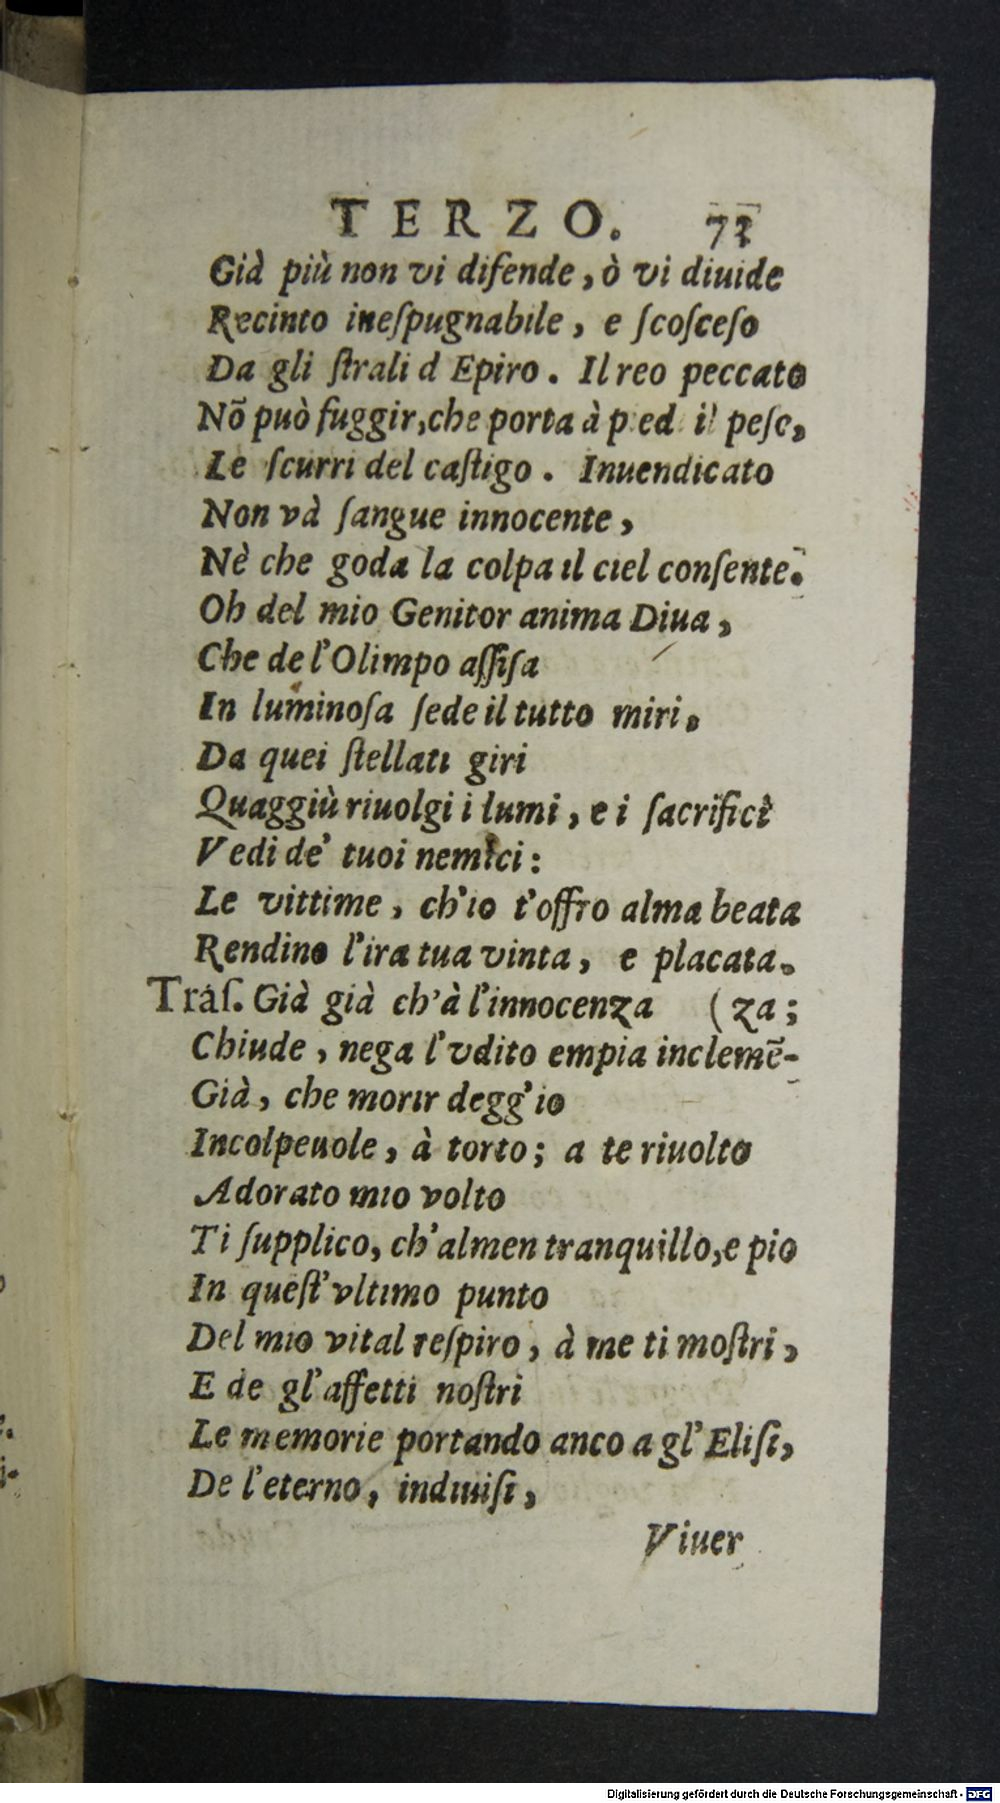 TERZO. 73
Già più non vi difende, ò vi diuide
Recinto ineſpugnabile, e ſcoſceſo
Da gli ſtrali d Epiro. Il reo peccato
Nõ può fuggir, che porta à p ed il peſo,
Le ſcurri del caſtigo. Inuendicato
Non và ſangue innocente,
Nè che goda la colpa il ciel conſente.
Oh del mio Genitor anima Diua,
Che de l'Olimpo aſſiſa
In luminoſa ſede il tutto miri.
Da quei ſtellati giri
Quaggiù riuolgi i lumi, e i ſacrifici
Vedi de' tuoi nemici:
Le vittime, ch'io t'offro alma beata
Rendino l'ira tua vinta, e placata.
Traſ. Già già ch'à l'innocenza (za;
Chiude, nega l'vdito empia inclemẽ-
Già, che morir degg'io
Incolpeuole, à torto; a te riuolto
Adorato mio volto
Ti ſupplico, ch'almen tranquillo, e pio
In queſt'vltimo punto
Del mio vital reſpiro, à me ti moſtri,
E de gl'affetti noſtri
Le memorie portando anco a gl'Eliſi,
De l'eterno, indiuiſi,
Viuer
Digitalisierung gefördert durch die Deutsche Forschungsgemeinschaft - DFG